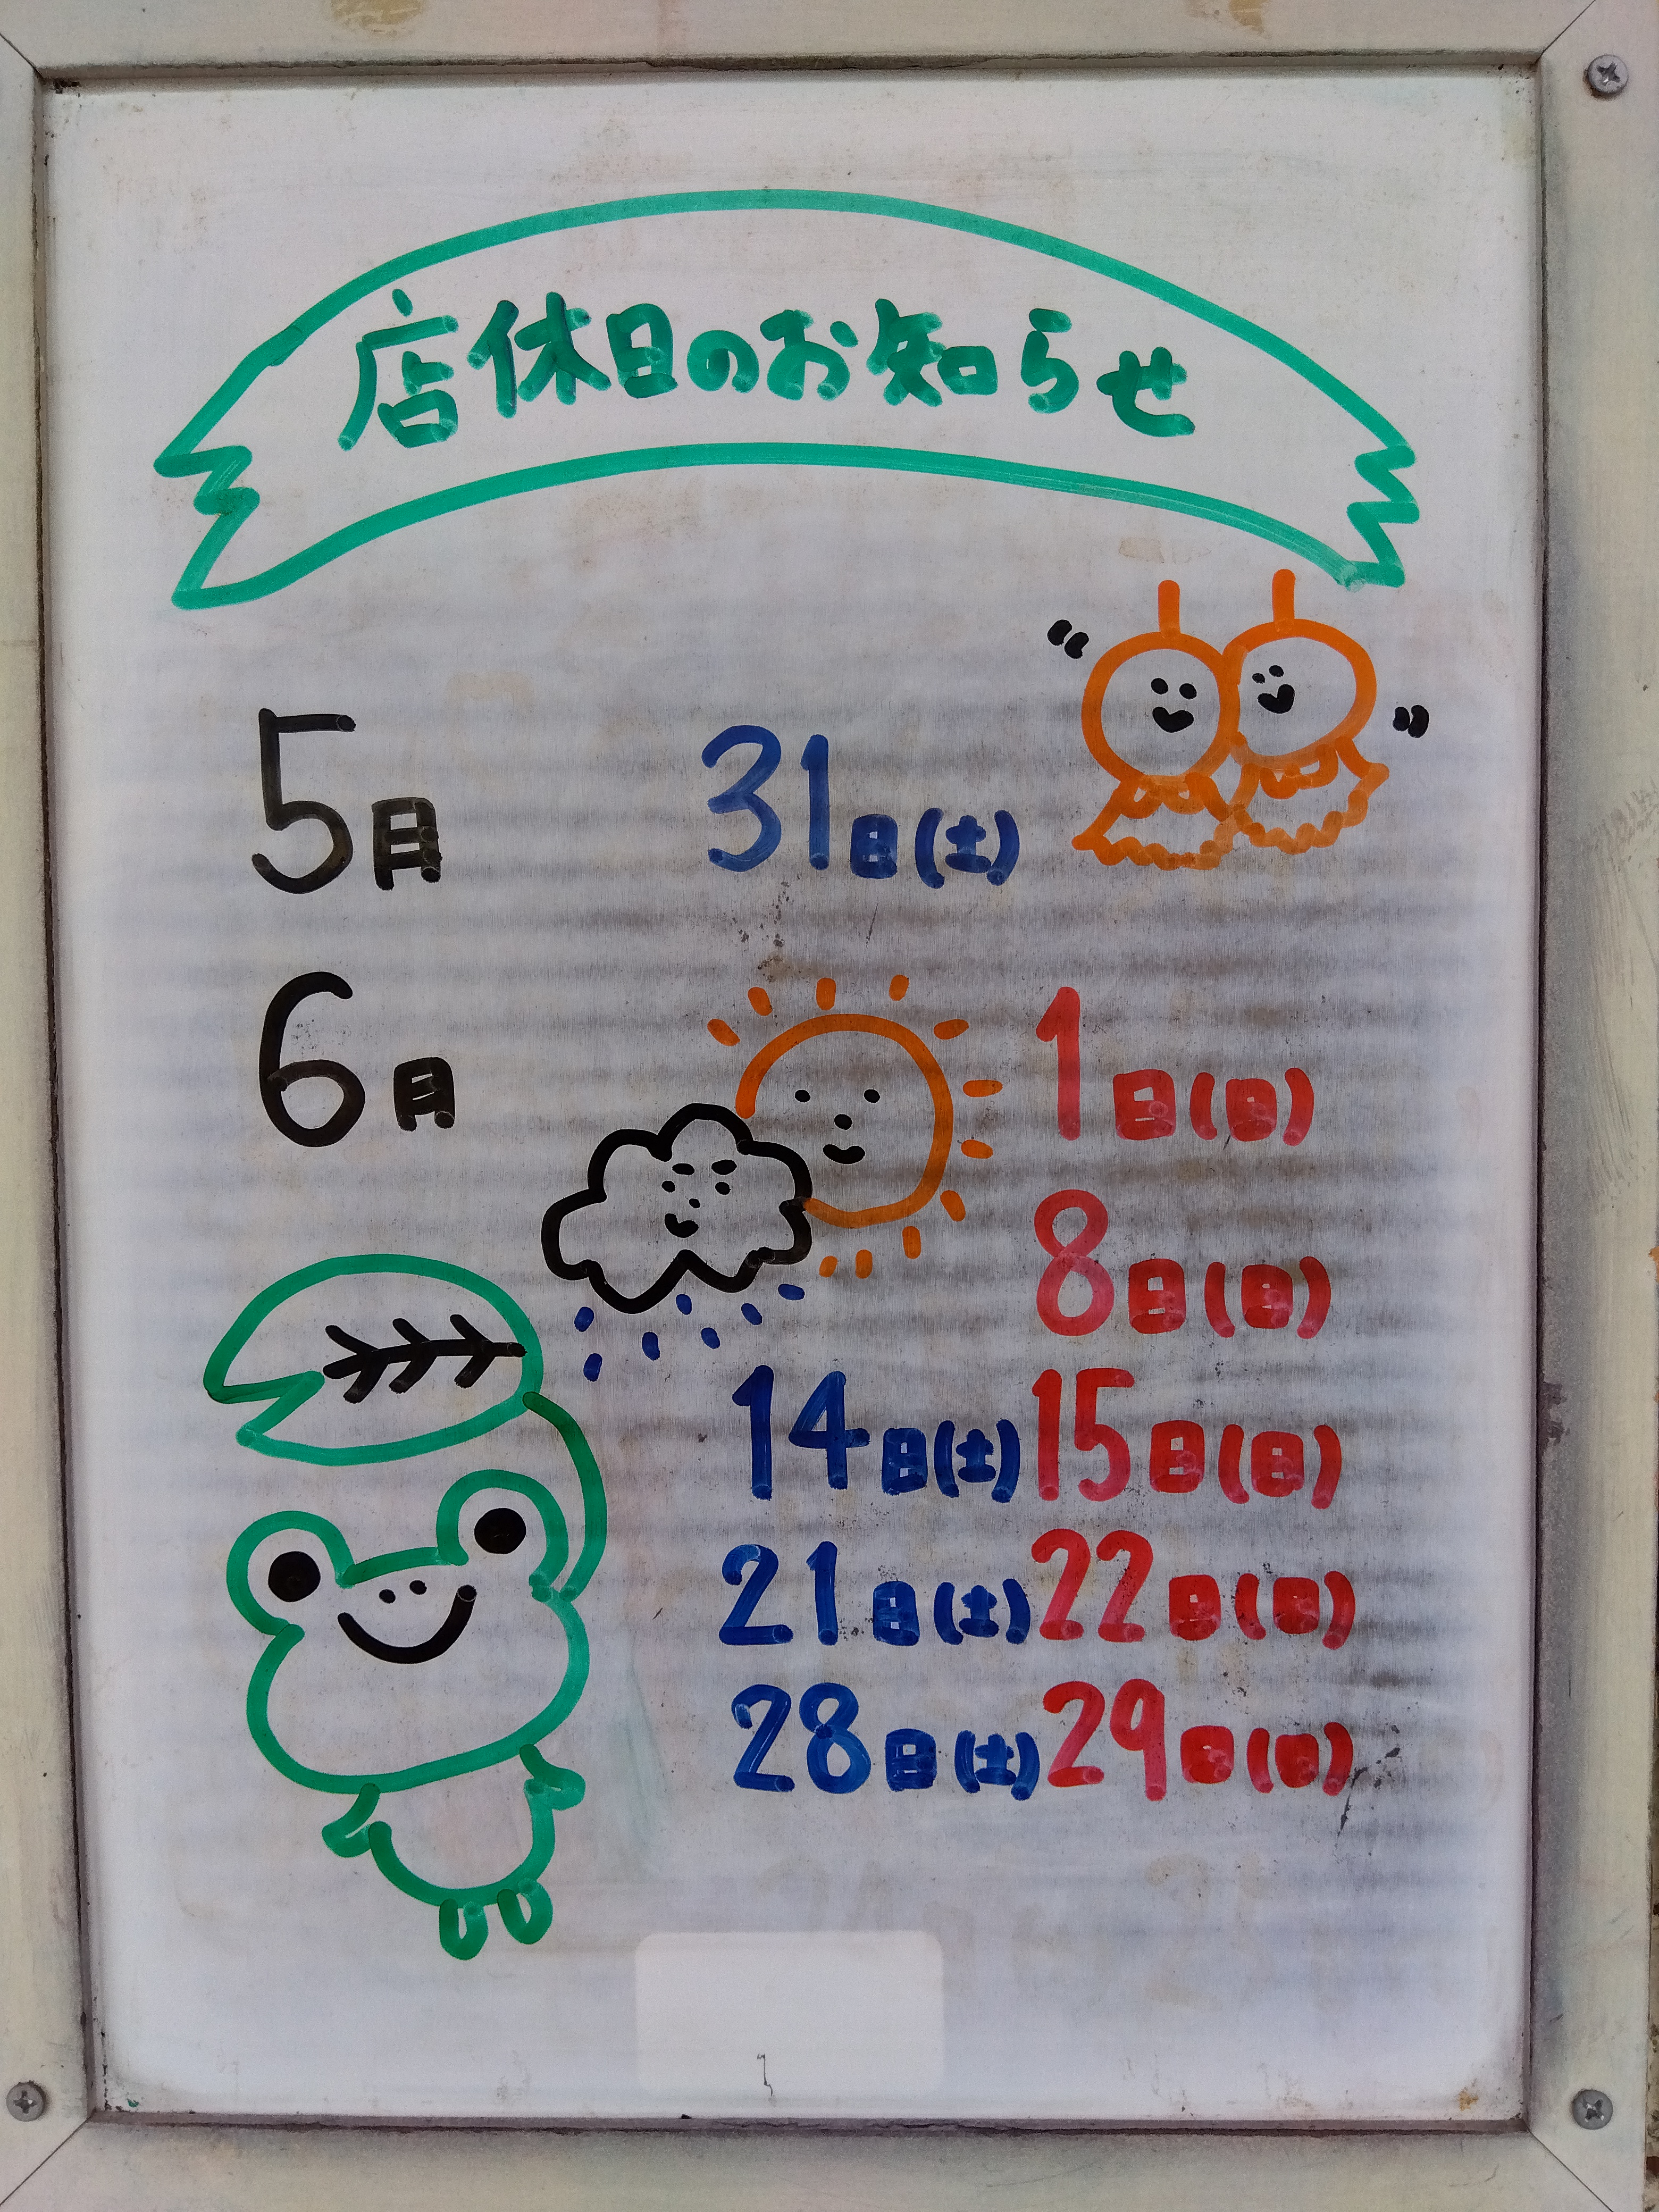 店休日のお知らせ
5月 31日(土)
6月 1日(日)
8日(日)
14日(土) 15日(日)
21日(土) 22日(日)
28日(土) 29日(日)